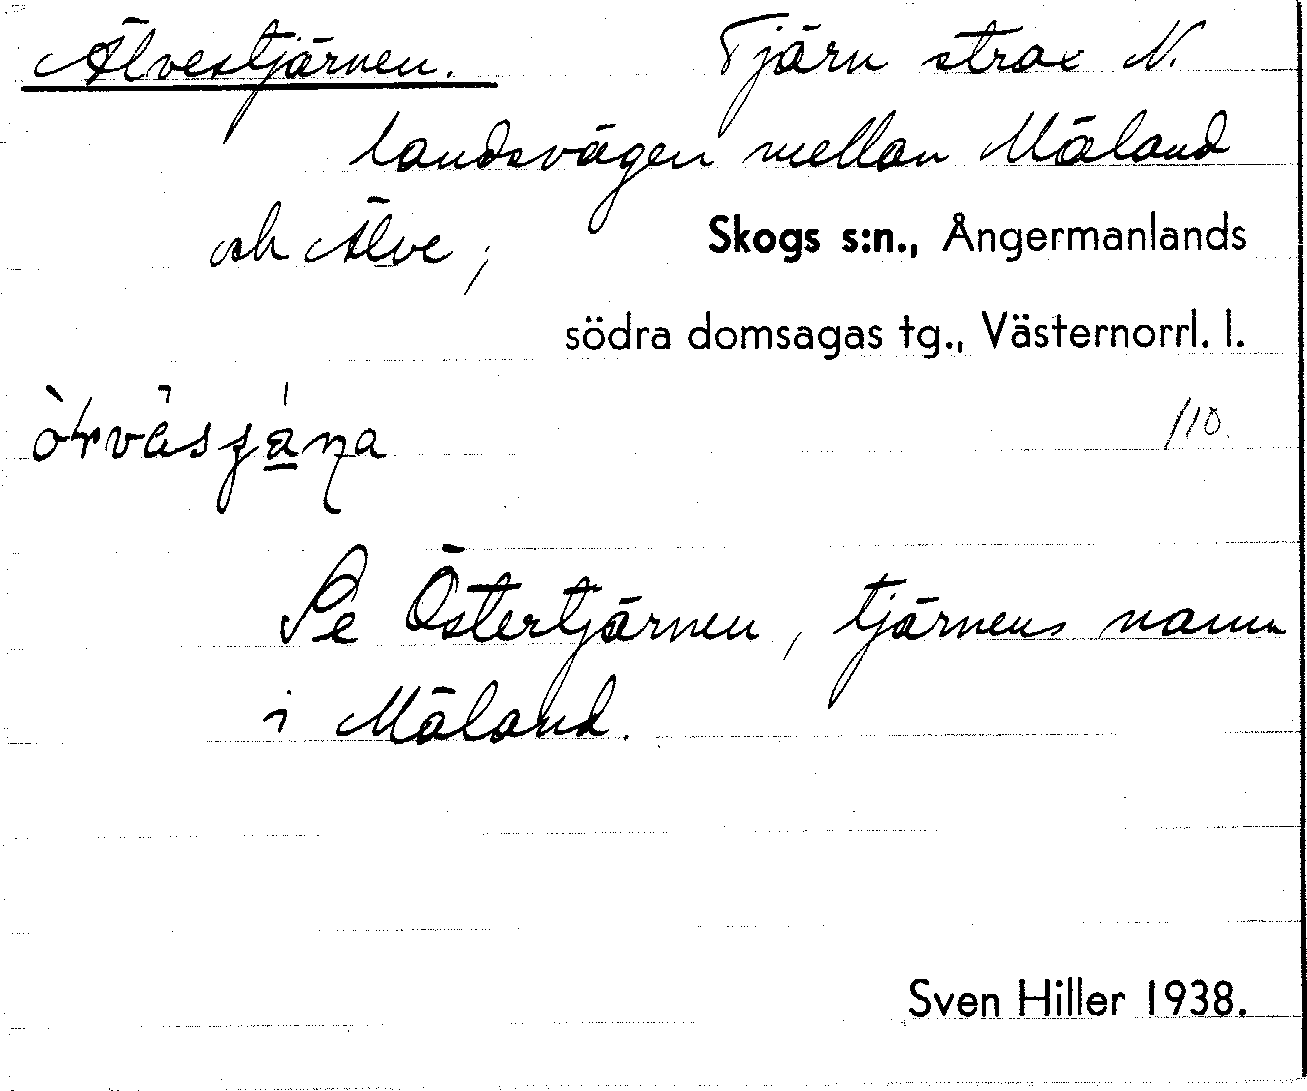 Älvestjärnen. Tjärn strax N.
landsvägen mellan Mäland
och Älve, Skogs s:n., Ångermanlands
södra domsagas tg., Västernorrl. l.
110
Se Östertjärnen, tjärnens namn
i Mäland.
Sven Hiller 1938.